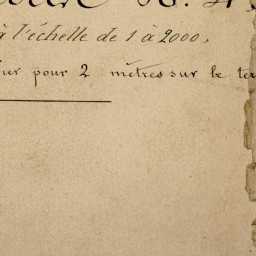 à l'échelle de 1 à 2000,
pour 2 mètres sur le ter